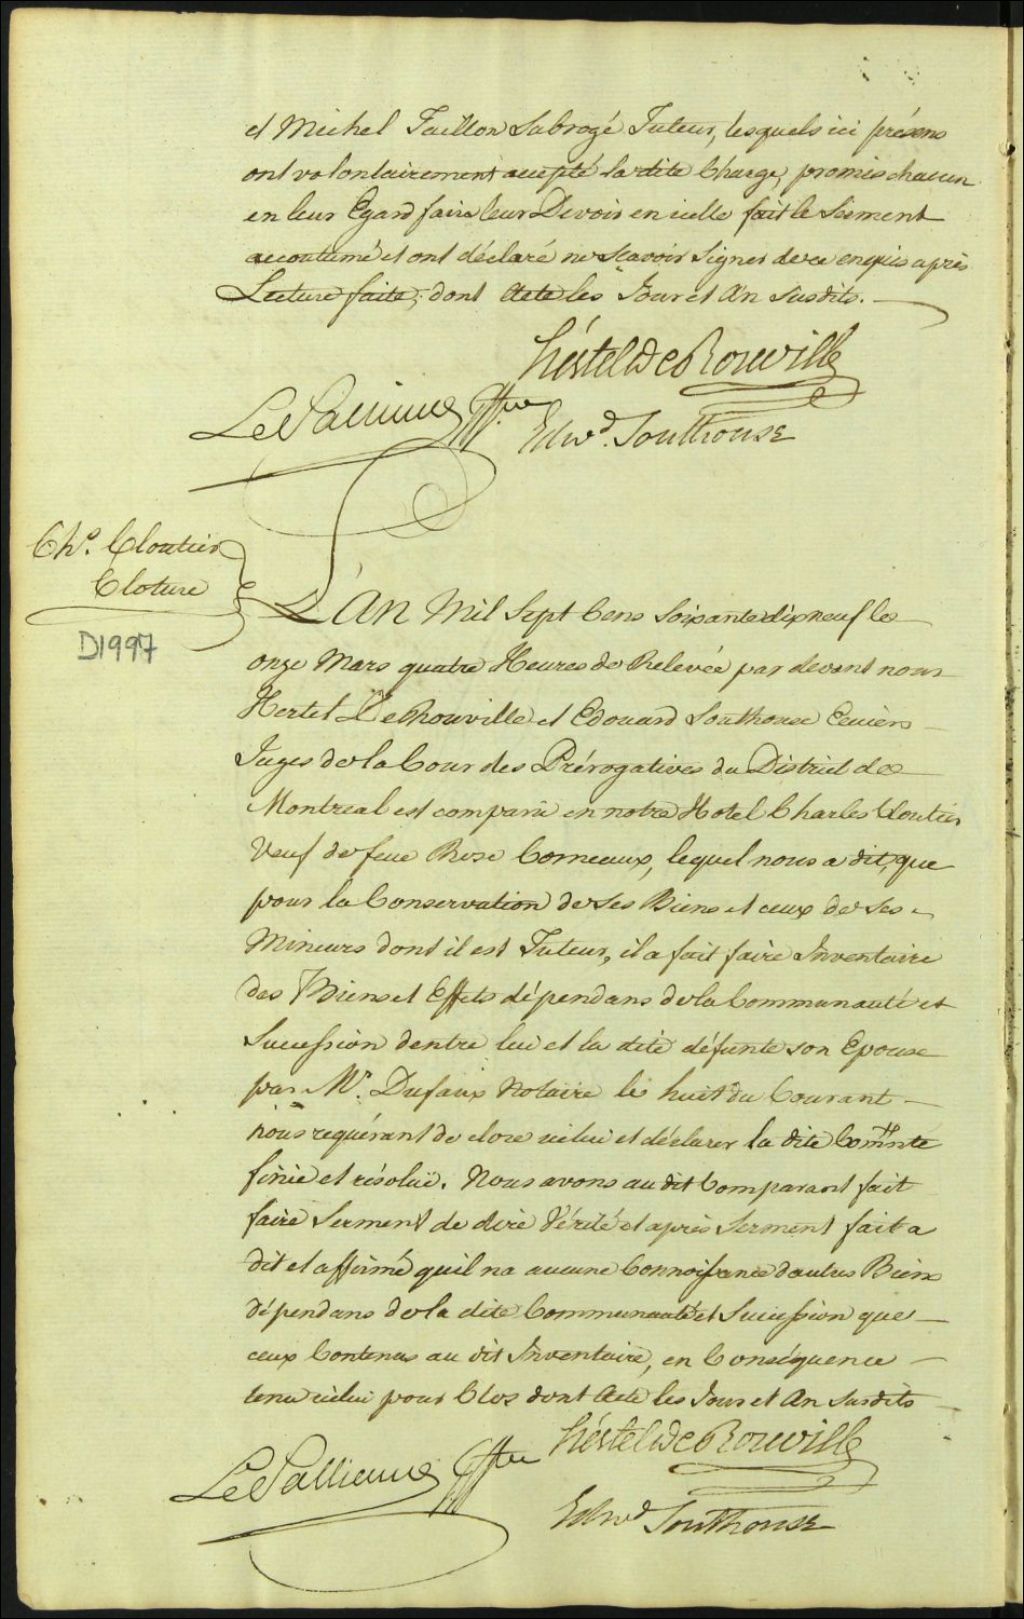 et Michel Taillon Subrogé Tuteur, lesquels ici présens
ont volontairement accepté la dite Charge, promis chacun
en leur Egard faire leur Devoir en icelle fait le Serment
accoutumé et ont déclaré ne Scavoir Signer de ce enquis après
Lecture faite; dont Acte les Jour et An Susdits.
hértel De Rouville
LePallieur Gffier
Edwd. Southouse
Chs. Cloutier
Cloture
D1997
L'An Mil Sept Cens Soixante dix neuf le
onze Mars quatre Heures de Relevée par devant nous
Hertel De Rouville et Edouard Southouse Ecuiers
Juges de la Cour des Prérogatives du District de
Montreal est comparu en notre Hotel Charles Cloutier
Veuf de feue Rose Comeaux, lequel nous a dit, que
pour la Conservation de Ses Biens et ceux de Ses
Mineurs dont il est Tuteur, il a fait faire Inventaire
des Biens et Effets dépendans de la Communauté et
Sucession dentre lui et la dite défunte son Epouse
par Mr. Dufaux Notaire le huit du Courant
nous requérant de clore icelui et déclarer la dite Commnté
finie et résolüe. Nous avons au dit Comparant fait
faire Serment de dire Vérité et après Serment fait a
dit et affirmé quil na aucune Connoissance dautres Biens
dépendans de la dite Communauté et Sucession que
ceux Contenus au dit Inventaire, en Conséquence
tenu icelui pour Clos dont Acte les Jour et An Susdits
hértel De Rouville
LePallieur Gffier
Edwd Southouse